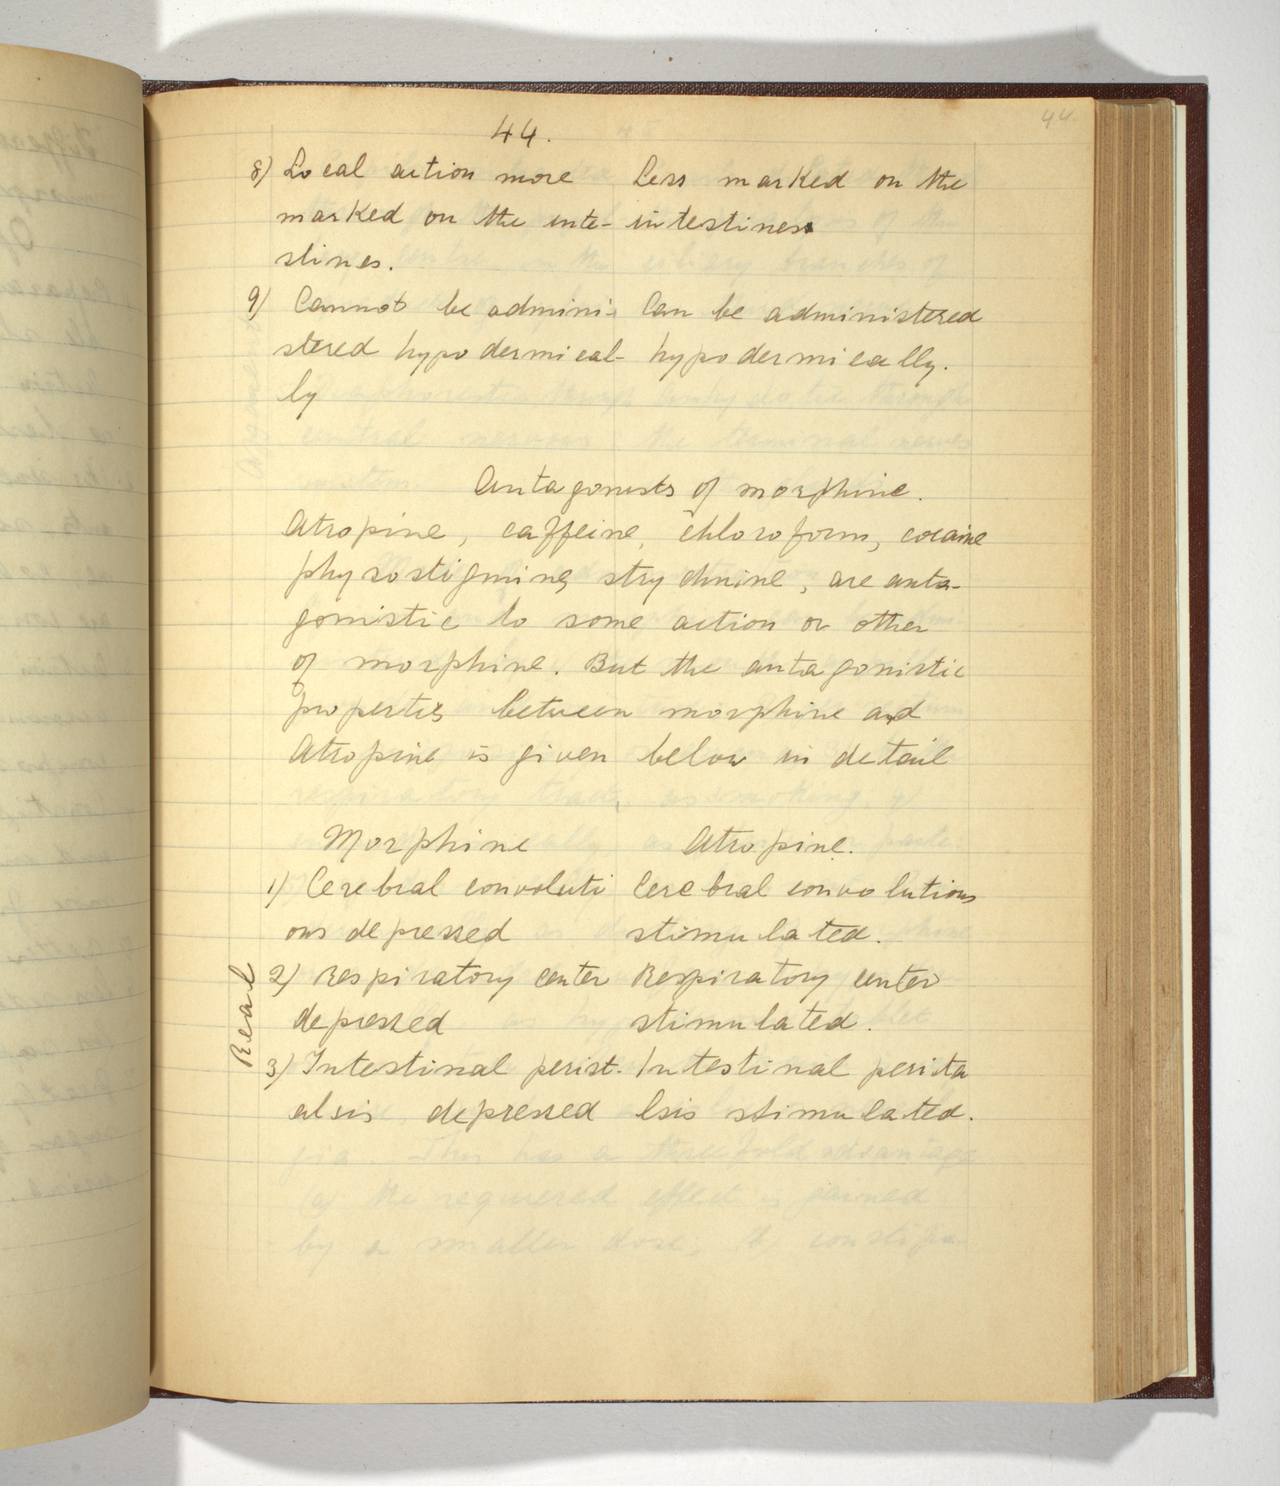 44.
44
8) Local action more    Less marked on the
marked on the inte-    intestines
stines.
9) Cannot be admini-    Can be administered
stered hypodermical-    hypodermically.
ly
Antagonists of morphine.
Atropine, caffeine, chloroform, cocaine
physostigmine, strychnine, are anta-
gonistic to some action or other
of morphine. But the antagonistic
properties between morphine and
Atropine is given below in detail
Morphine    Atropine.
1) Cerebral convoluti    Cerebral convolutions
ons depressed    stimulated.
Real
2) Respiratory center    Respiratory center
depressed    stimulated.
3) Intestinal perist-    Intestinal perista
alsis depressed    lsis stimulated.